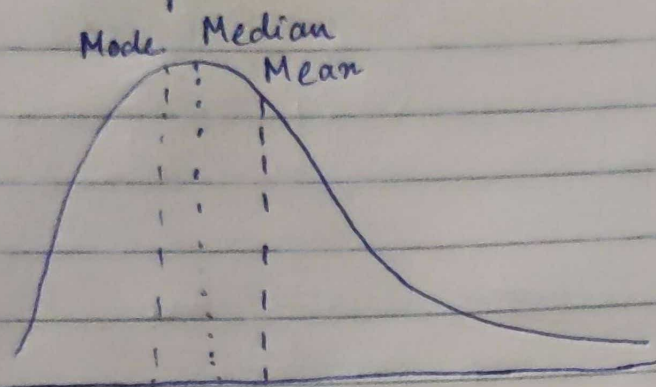 Mode Median
Mean